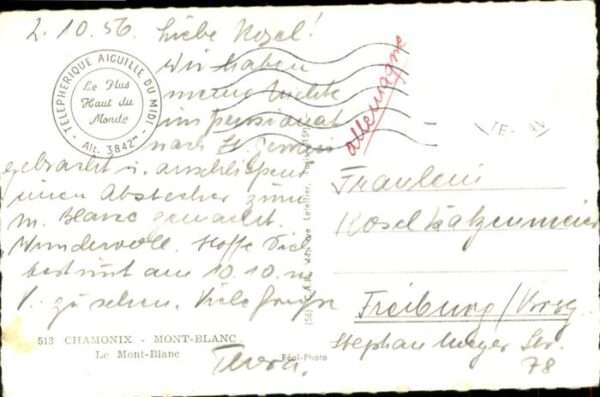 2.10.56. Liebe Rosel!
Wir haben
meine Nichte
ins Pensionat
nach
gebracht u. anschließend
einen Abstecher zum
M. Blanc gemacht.
Wundervoll. Hoffe Dich
bestimmt am 10.10.
zu sehen. Viele Grüße
TELEPHERIQUE AIGUILLE DU MIDI - Alt. 3842m -
Le Plus
Haut du
Monde
allemagne
Fräulein
Rosel Katzenmeier
Freiburg/Brsg.
Stephan Meyer Str.
78
513 CHAMONIX - MONT-BLANC
Le Mont-Blanc
Réel-Photo